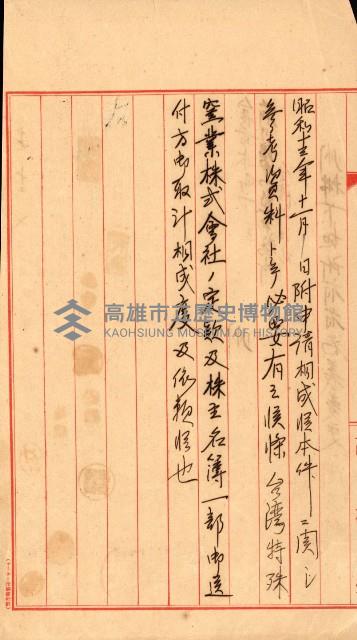 昭和十五年十一月 日附申請相成候本件ニ関シ
参考資料トシテ必要有之候條台湾特殊
窯業株式會社ノ定款及株主名簿一部御送
付方御取計相成度及依頼候也
高雄市立歷史博物館
KAOHSIUNG MUSEUM OF HISTORY